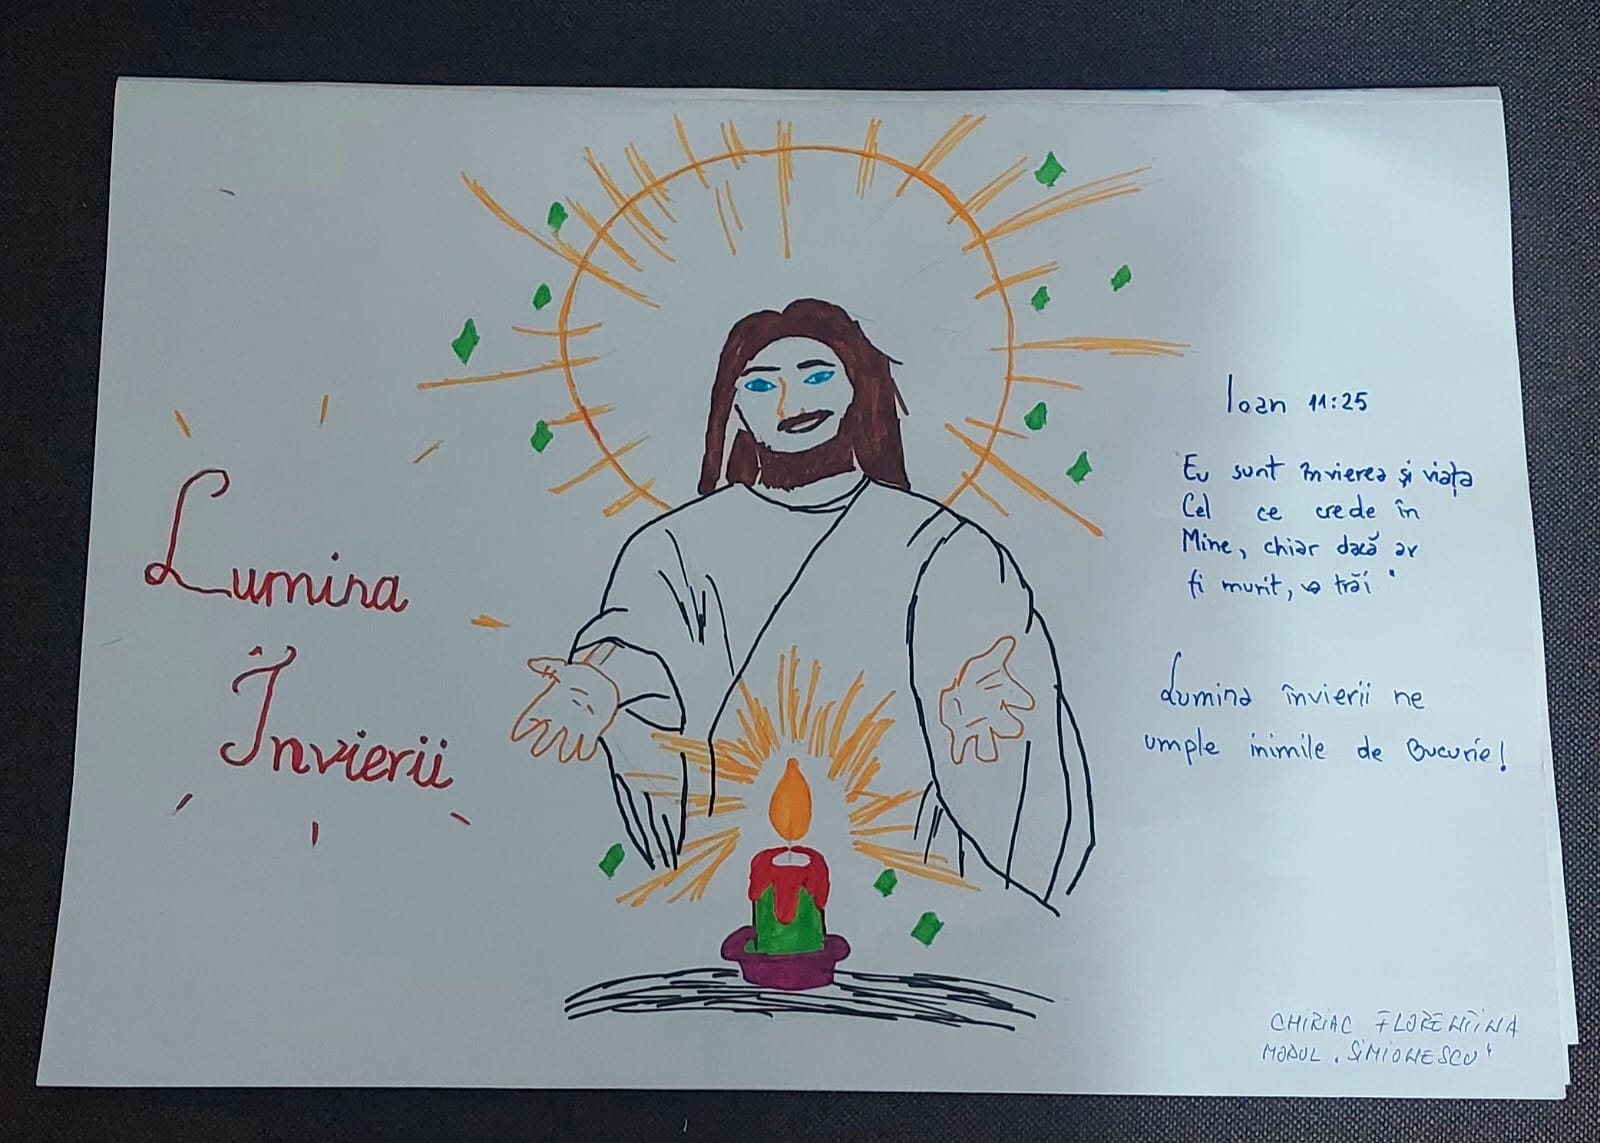 Lumina
Învierii
Ioan 11:25
Eu sunt învierea și viața
Cel ce crede în
Mine, chiar dacă ar
fi murit, va trăi"
Lumina învierii ne
umple inimile de Bucurie!
CHIRIAC FLORENTINA
MODUL "SIMIONESCU"